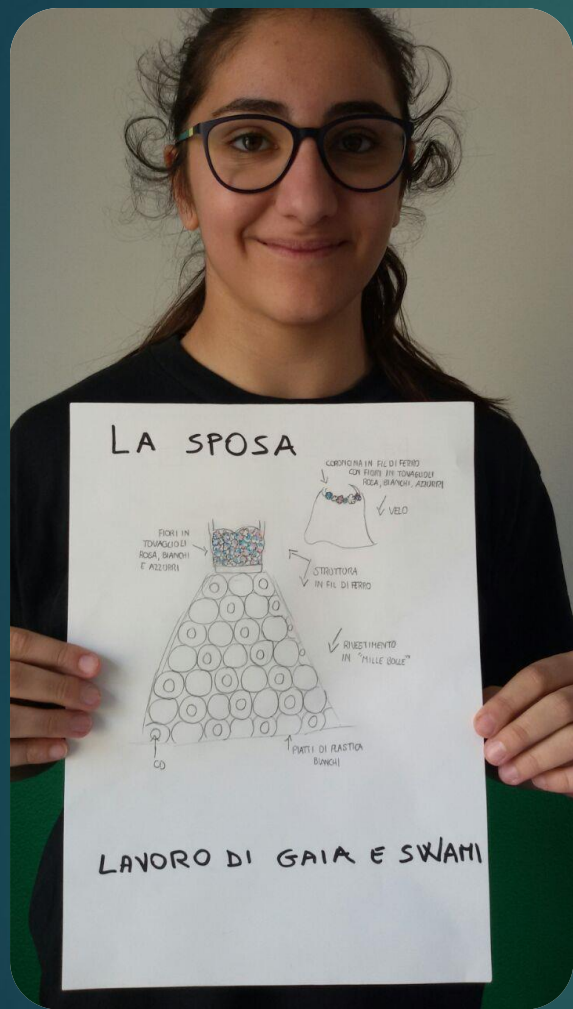 LA SPOSA
CORONCINA IN FIL DI FERRO
CON FIORI IN TOVAGLIOLI
ROSA, BIANCHI, AZZURRI
VELO
FIORI IN
TOVAGLIOLI
ROSA, BIANCHI
E AZZURRI
STRUTTURA
IN FIL DI FERRO
RIVESTIMENTO
IN "MILLE BOLLE"
PIATTI DI PLASTICA
BIANCHI
CD
LAVORO DI GAIA E SWAMI